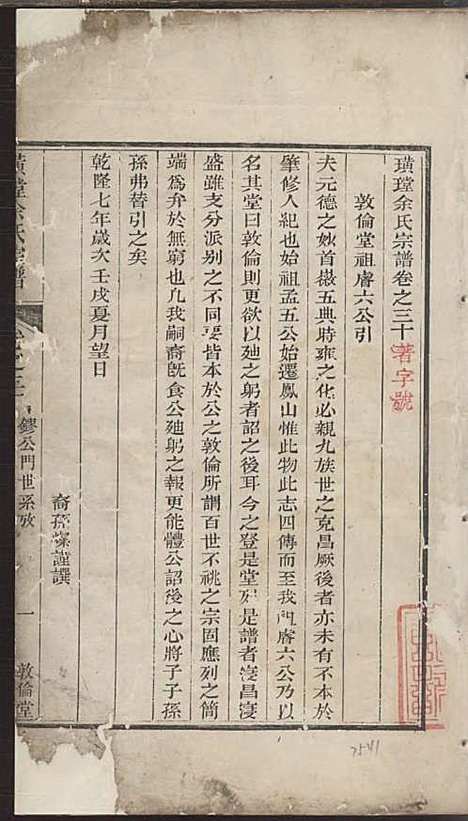 璜瑝余氏宗譜卷之三十 著字號
敦倫堂祖睿六公引
夫元德之妙首徽五典時雍之化必親九族世之克昌厥後者亦未有不本於
肇修人紀也始祖孟五公始遷鳳山惟此物此志四傳而至我門睿六公乃以
名其堂曰敦倫則更欲以廸之躬者詔之後耳今之登是堂列是譜者寖昌寖
盛雖支分派別之不同要皆本於公之敦倫所謂百世不祧之宗固應列之簡
端為弁於無窮也凡我嗣裔旣食公廸躬之報更能體公詔後之心將子子孫
孫弗替引之矣
乾隆七年歲次壬戌夏月望日
裔孫燦謹譔
璜瑝余氏宗譜
卷之三十
鏐公門世系攷
一
敦倫堂
7541